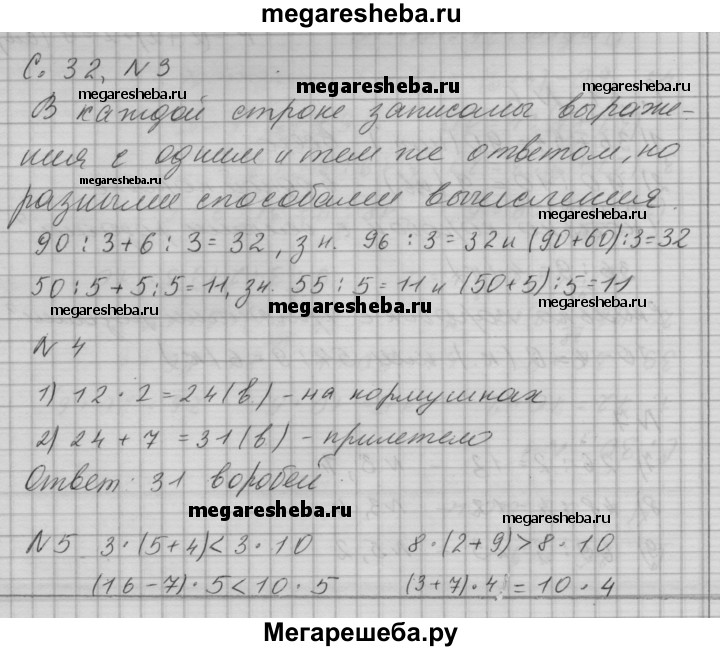 megaresheba.ru
С. 32, N 3
megaresheba.ru
megaresheba.ru megaresheba.ru
В каждой строке записаны выраже-
ния с одним и тем же ответом, но
megaresheba.ru
разными способами вычисления.
megaresheba.ru
90 : 3 + 6 : 3 = 32, зн. 96 : 3 = 32 и (90+60) : 3 = 32
50 : 5 + 5 : 5 = 11, зн. 55 : 5 = 11 и (50+5) : 5 = 11
megaresheba.ru megaresheba.ru megaresheba.ru
N 4
1) 12 · 2 = 24 (в) - на кормушках
2) 24 + 7 = 31 (в) - прилетело
megaresheba.ru
Ответ: 31 воробей.
megaresheba.ru megaresheba.ru
N 5 3 · (5+4) < 3 · 10 8 · (2+9) > 8 · 10
(16-7) · 5 < 10 · 5 (3+7) · 4 = 10 · 4
megaresheba.ru megaresheba.ru
Мегарешеба.ру